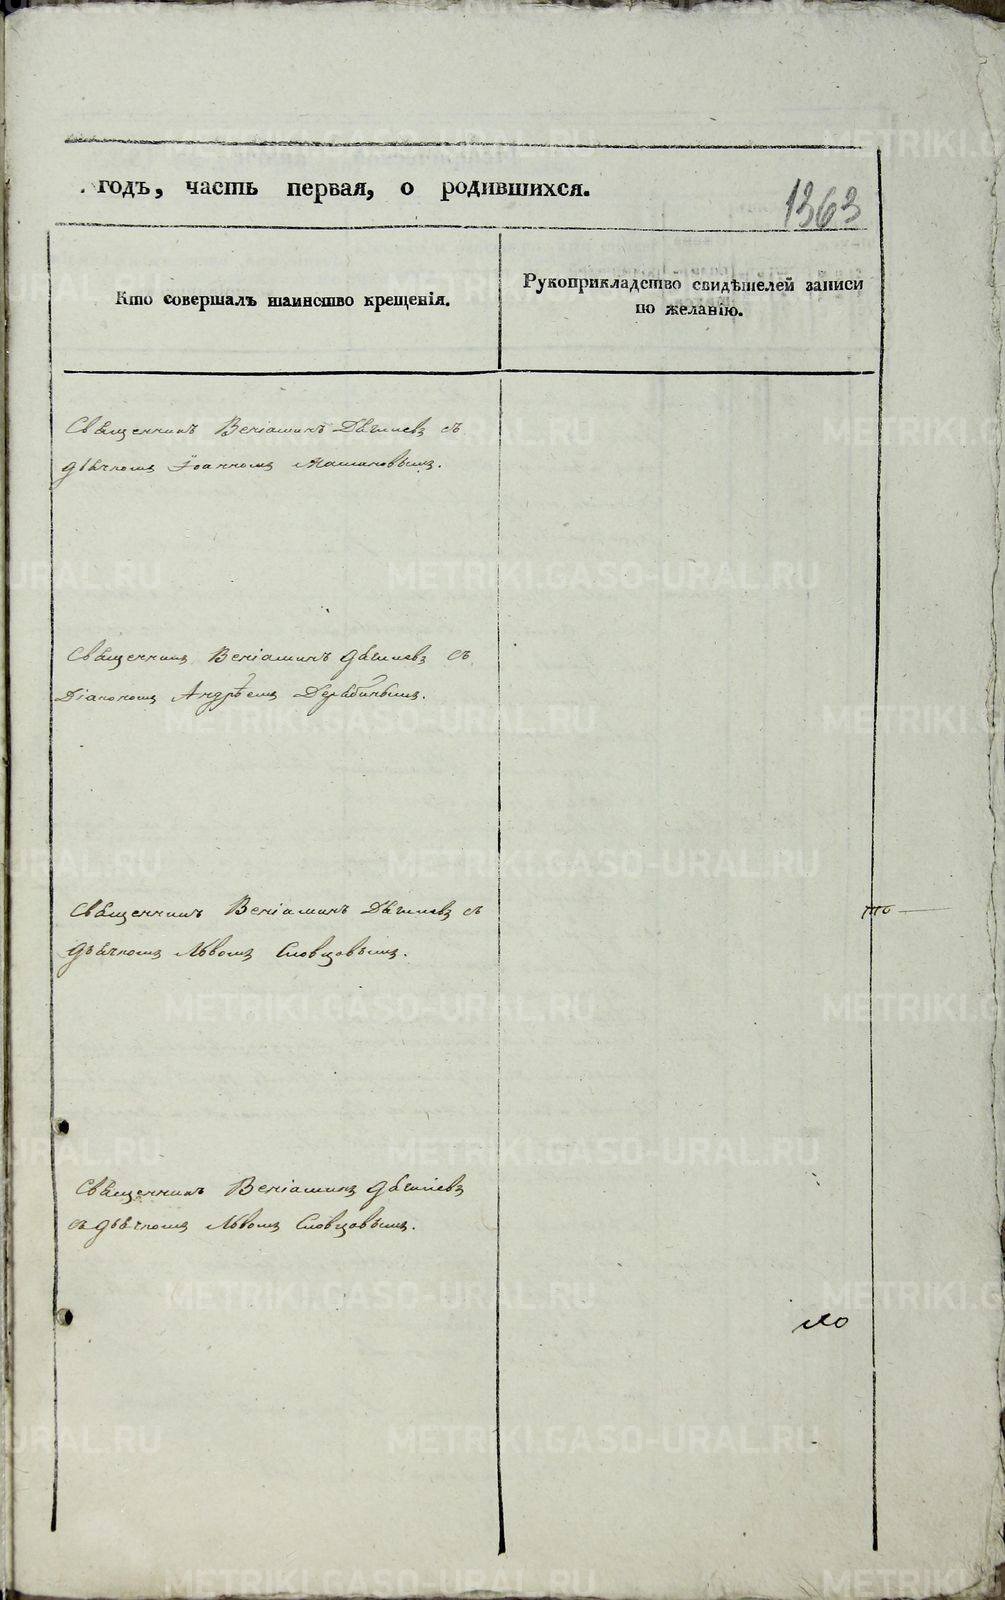 годъ, часть первая, о родившихся.
1363
Кто совершалъ таинство крещенія.
Рукоприкладство свидѣтелей записи
по желанію.
Священникъ Веніаминъ съ
дьячкомъ Іоанномъ
Священникъ Веніаминъ съ
Діакономъ Андрѣемъ Дерябинымъ.
Священникъ Веніаминъ съ
дьячкомъ Львомъ Словцовымъ.
Священникъ Веніаминъ
съ дьячкомъ Львомъ Словцовымъ.
METRIKI.GASO-URAL.RU